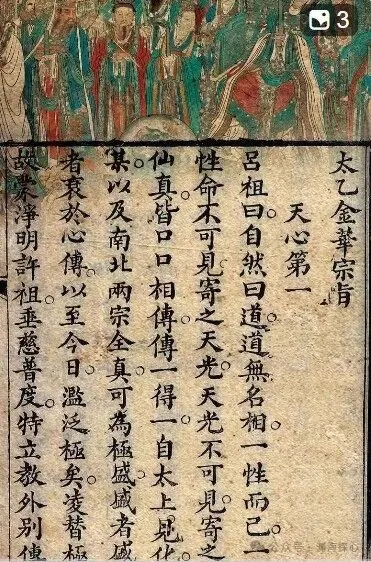 3
太乙金華宗旨
天心第一
呂祖曰。自然曰道。道無名相。一性而已。一
性命不可見。寄之天光。天光不可見。寄之
仙真皆口口相傳。傳一得一。自太上見化
某。以及南北兩宗全真。可為極盛。盛者盛
者衰於心傳。以至今日。濫泛極矣。凌替極
故蒙淨明許祖。垂慈普度。特立教外別傳
公众号